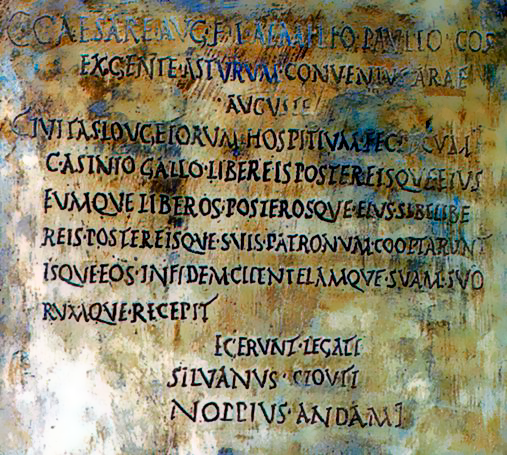 C·CAESARE·AVG·F·L·AEMILIO·PAVLLO·COS
EX·GENTE·ASTVRVM·CONVENTVS·ARAE
·AVGVSTE
CIVITAS·LOVGEIORVM·HOSPITIVM·FECIT·CVM
C·ASINIO·GALLO·LIBEREIS·POSTEREISQVE·EIVS
EVMQVE·LIBEROS·POSTEROSQVE·EIVS·SIBI·LIBE
REIS·POSTEREISQVE·SVIS·PATRONVM·COOPTARVNT
ISQVE·EOS·IN·FIDEM·CLIENTELAMQVE·SVAM·SVO
RVMQVE·RECEPIT
EGERVNT·LEGATI
SILVANVS·CLOVTI
NOPPIVS·ANDAMI